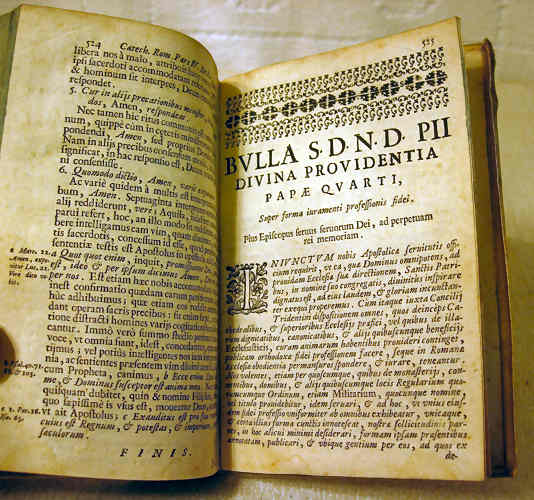 524 Catech. Rom. Par. IV.
libera nos à malo, attribuit
ipsi sacerdoti accommodatum
& hominum sit interpres, Deum
respondet.
5. Cur in alijs precationibus
dos, Amen, respondent.
Nec tamen hic ritus communis est
num, quippe cùm in ceteris ministrorum
pondendi, Amen, sed proprius Domini
Nam in alijs precibus consensum
significat, in hac responsio est, Deum
ni consensisse.
6. Quomodo dictio, Amen, variè
Ac variè quidem à multis est interpretatum
bum, Amen. Septuaginta interpretes
alij reddiderunt, verè; Aquila, fideliter
parui refert, hoc, an illo modo
bere intelligamus eam vim,
tis sacerdotis, concessum id esse, quod
sententiæ testis est Apostolus in epistola
Quot quot enim, inquit, promissiones
est, ideo & per ipsum dicimus Amen, Deo
per nos. Est etiam hæc nobis accommodata
nest confirmatio quædam earum petitionum
huc adhibuimus; quæ etiam eos
dant operam sacris precibus: sit enim
tione distracti homines variis cogitationibus
cantur. Immò verò summo studio petimus
voce, vt omnia fiant, idest, concedantur
cimus; vel potiùs intelligentes nos iam
nia, ac sentientes præsentem vim diuini
cum Propheta, canimus, Ecce enim Deus
me, & Dominus susceptor est animæ meæ. Nec
quisquam dubitet, quin & nomine Filij
quo sæpissimè is vsus est, moueatur Deus
vt ait Apostolus: Exauditus est pro sua
cuius est Regnum, & potestas, & imperium,
sæculorum.
FINIS.
525
BVLLA S.D.N.D. PII
DIVINA PROVIDENTIA
PAPÆ QVARTI,
Super forma iuramenti professionis fidei.
Pius Episcopus seruus seruorum Dei, ad perpetuam
rei memoriam.
INIVNCTVM nobis Apostolicæ seruitutis offi
cium requirit, vt ea, quæ Dominus omnipotens, ad
prouidam Ecclesiæ suæ directionem, Sanctis Patri
bus, in nomine suo congregatis, diuinitùs inspirare
dignatus est, ad eius laudem, & gloriam incunctan
ter exequi properemus. Cum itaque iuxta Concilij
Tridentini dispositionem omnes, quos deinceps Ca
thedralibus, & superioribus Ecclesijs præfici, vel quibus de illa
rum dignitatibus, canonicatibus, & alijs quibuscunque beneficijs
Ecclesiasticis, curam animarum habentibus prouideri continget,
publicam orthodoxæ fidei professionem facere, seque in Romanæ
Ecclesiæ obedientia permansuros spondere, & iurare, teneantur.
Nos volentes, etiam per quoscunque, quibus de monasterijs, con
uentibus, domibus, & alijs quibuscunque locis Regularium quo
rumcunque Ordinum, etiam Militarium, quocunque nomine,
vel titulo prouidebitur, idem seruari, & ad hoc, vt vnius eius
dem fidei professio vniformiter ab omnibus exhibeatur, vnicaque
& certa illius forma cunctis innotescat, nostræ sollicitudinis par
tes, in hoc alicui minimè desiderari, formam ipsam præsentibus
annotatam, publicari, & vbique gentium per eos, ad quos ex
de-